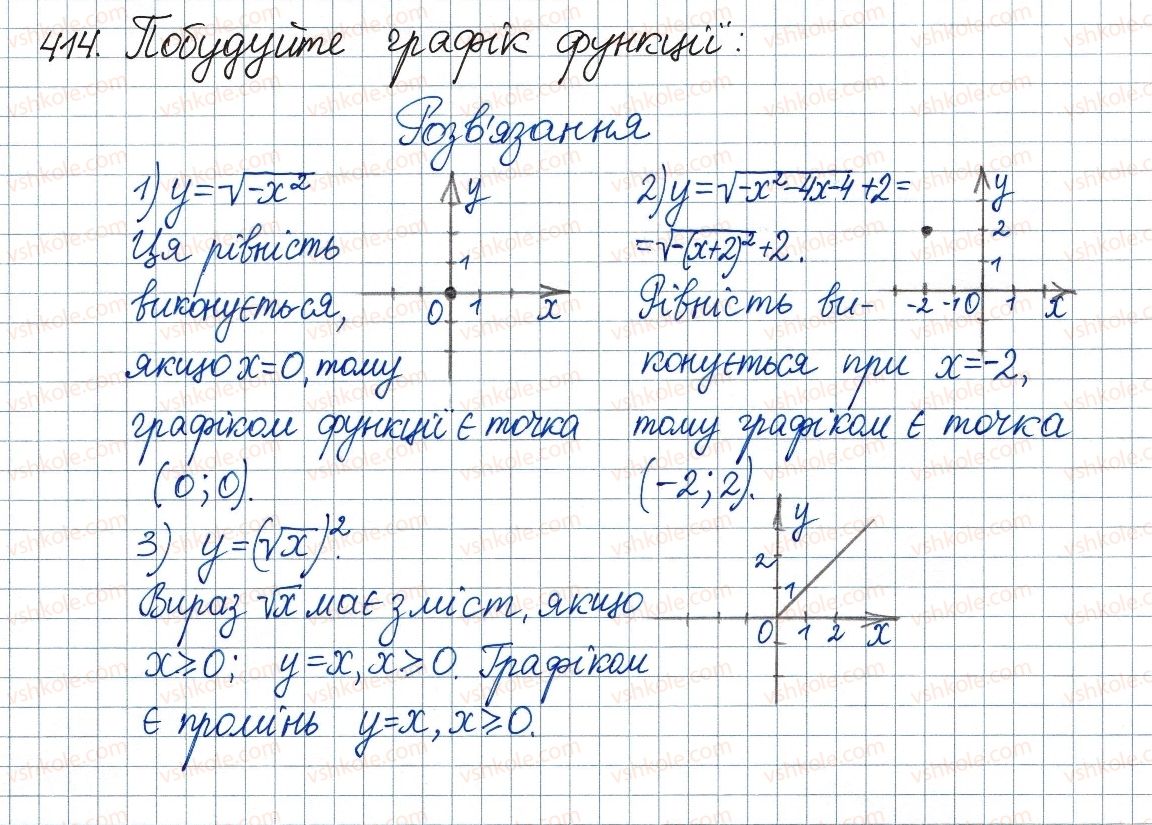 414. Побудуйте графік функції:
Розв'язання
1) y=√-x²
Ця рівність
виконується,
якщо x=0, тому
графіком функції є точка
(0;0).
y
1
0 1 x
2) y=√-x²-4x-4+2=
=√-(x+2)²+2.
Рівність ви-
конується при x=-2,
тому графіком є точка
(-2;2).
y
2
1
-2 -1 0 1 x
3) y=(√x)².
Вираз √x має зміст, якщо
x≥0; y=x, x≥0. Графіком
є промінь y=x, x≥0.
y
2
1
0 1 2 x
vshkole.com